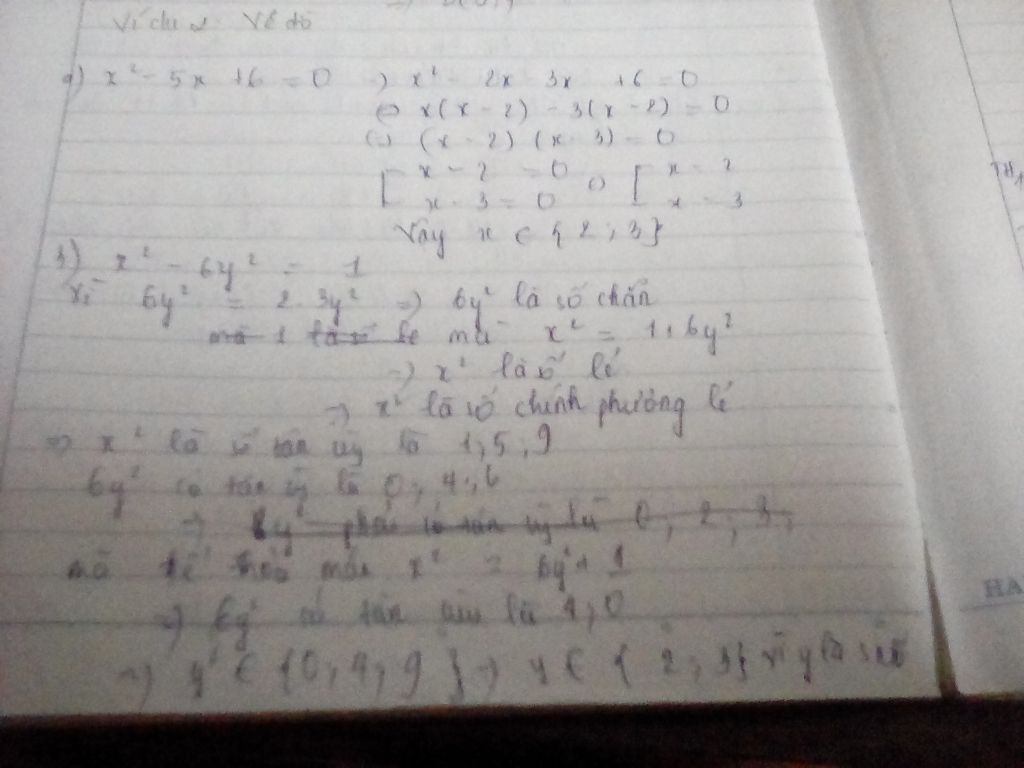 Ví dụ 2 Vẽ đồ
a) x² - 5x + 6 = 0 => x² - 2x 3x + 6 = 0
<=> x(x - 2) - 3(x - 2) = 0
<=> (x - 2) (x - 3) = 0
[ x - 2 = 0 <=> [ x = 2
x - 3 = 0 x = 3
Vậy x ∈ {2; 3}
3) x² - 6y² = 1
Vì 6y² = 2.3y² => 6y² là số chẵn
mà 1 là số lẻ mà x² = 1 + 6y²
=> x² là số lẻ
=> x² là số chính phương lẻ
=> x² là số tận cùng là 1; 5; 9
6y² có tận cùng là 0; 4; 6
=> 6y² phải có tận cùng là 0, 2, 3,
mà để thỏa mãn x² = 6y² + 1
=> 6y² có tận cùng là 4, 0
=> y² ∈ {0, 4, 9} => y ∈ {2; 3} vì y là số
HA